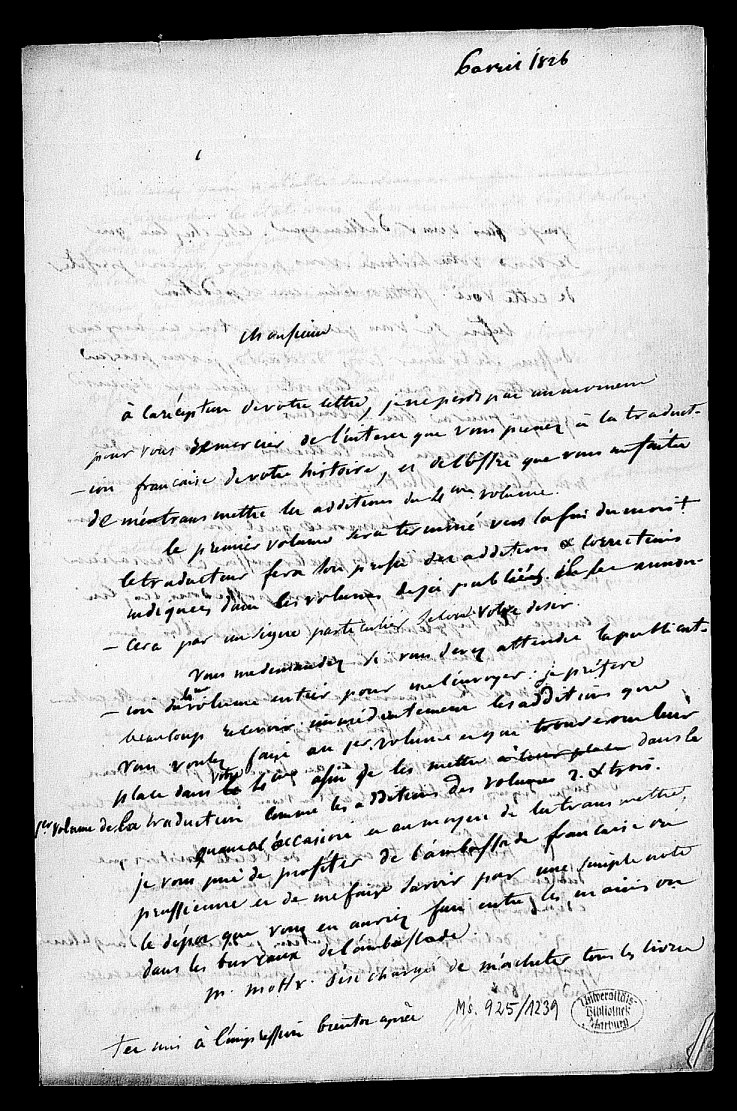 6 avril 1826
Monsieur
à la réception de votre lettre, je ne perds pas un moment
pour vous remercier de l'interet que vous prenez à la traduct-
-ion francaise de votre histoire, et de l'offre que vous me faites
de m'en transmettre les additions du 4eme volume.
le premier volume sera terminé vers la fin du mois;
le traducteur fera son profit des additions & corrections
indiquées dans les volumes dejà publiés. il les annon-
-cera par un signe particulier selon votre desir.
vous me demandez si vous devez attendre la publicat-
-ion du volume entier pour me l'envoyer. je préfère
beaucoup recevoir immédiatement les additions que
vous voulez faire au 1er volume et qui trouveront leur
place dans votre 4e afin de les mettre à leur place dans le
1er volume de la traduction comme les additions des volumes 2. & trois.
quant à l'occasion et au moyen de les transmettre,
je vous prie de profiter de l'ambassade francaise ou
prussienne et de me faire savoir par une simple note
le dépot que vous en auriez fait entre les mains ou
dans les bureaux de l'ambassade
M. est chargé de m'acheter tous les livres
à l'impression bientot après
Ms. 925/1239
Universitäts-
Bibliothek
Marburg